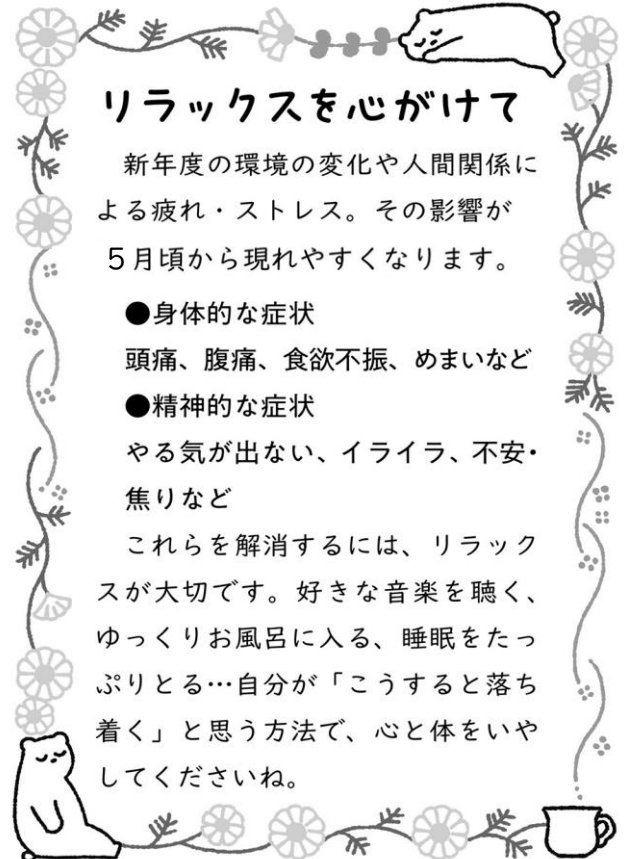 リラックスを心がけて
新年度の環境の変化や人間関係に
よる疲れ・ストレス。その影響が
5月頃から現れやすくなります。
●身体的な症状
頭痛、腹痛、食欲不振、めまいなど
●精神的な症状
やる気が出ない、イライラ、不安・
焦りなど
これらを解消するには、リラック
スが大切です。好きな音楽を聴く、
ゆっくりお風呂に入る、睡眠をたっ
ぷりとる…自分が「こうすると落ち
着く」と思う方法で、心と体をいや
してくださいね。